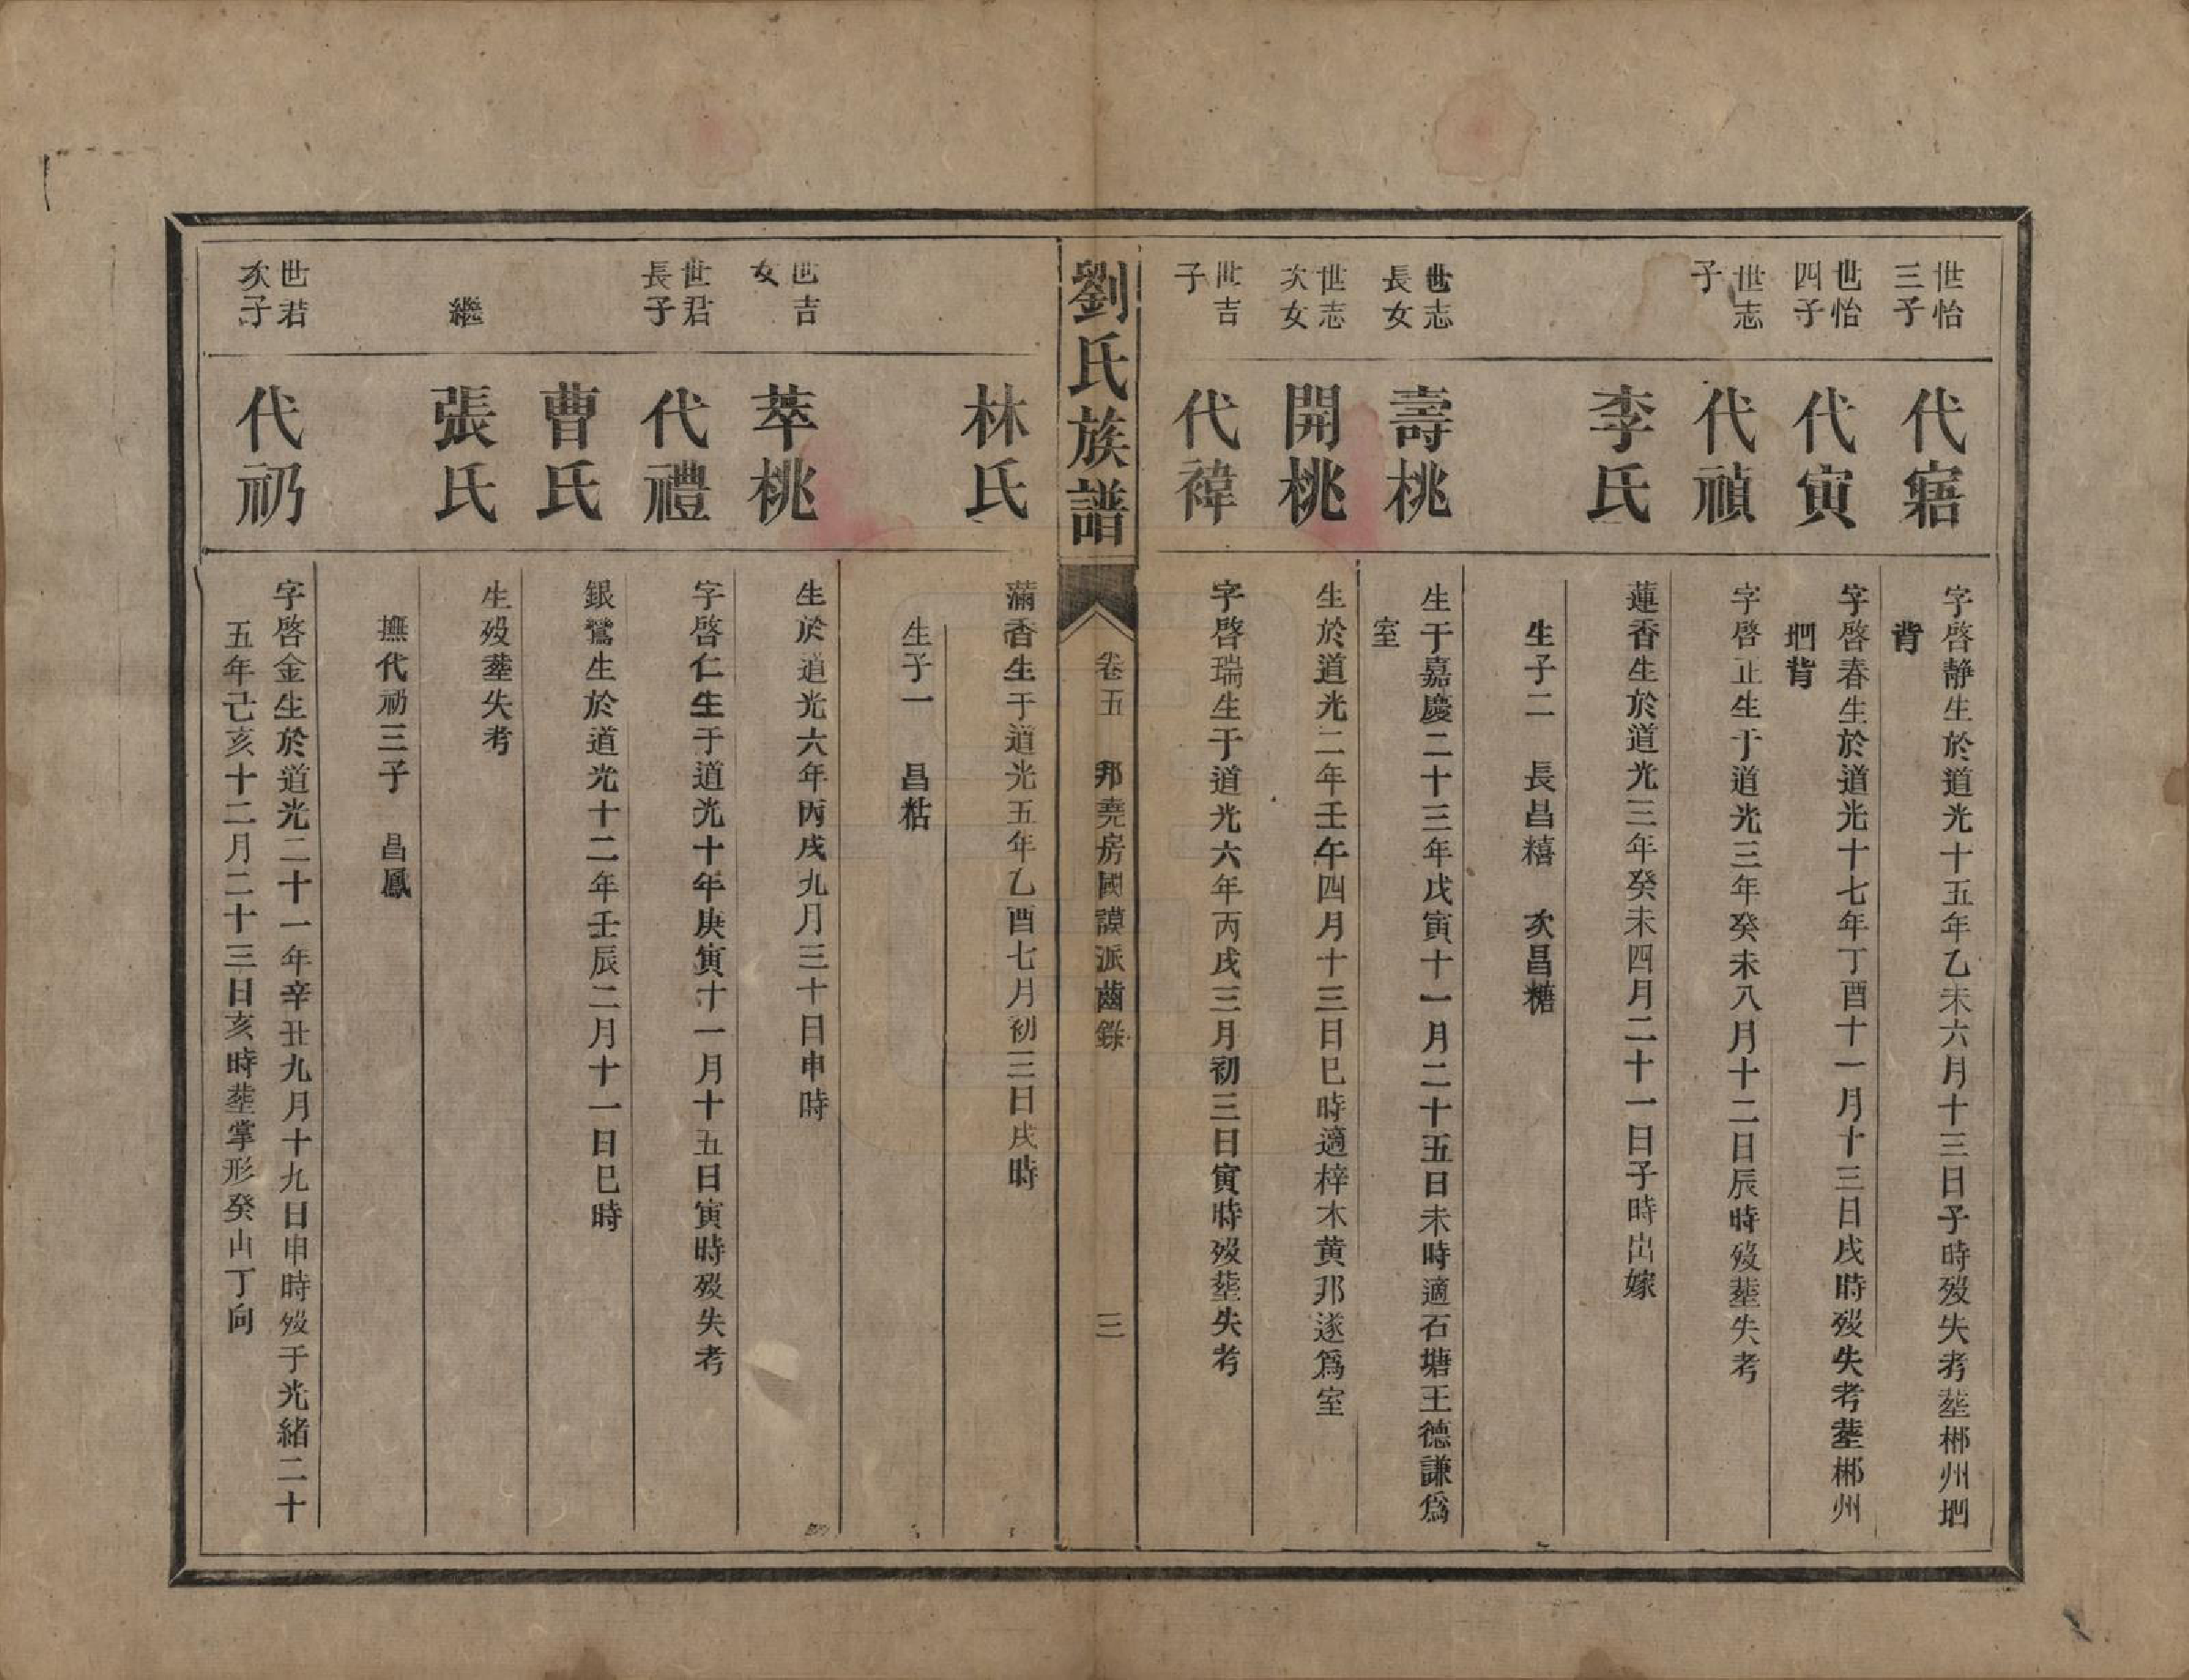 世怡三子
代𡪢
字啓靜生於道光十五年乙未六月十三日子時殁失考塟郴州垇
背
世怡四子
代寅
字啓春生於道光十七年丁酉十一月十三日戌時殁失考塟郴州
垇背
世志子
代禎
字啓正生于道光三年癸未八月十二日辰時殁塟失考
李氏
蓮香生於道光三年癸未四月二十一日子時出嫁
生子二　長昌糦　次昌糖
世志長女
壽桃
生于嘉慶二十三年戊寅十一月二十五日未時適石塘王德謙爲
室
世志次女
開桃
生於道光二年壬午四月十三日巳時適梓木黄邦遂爲室
世吉子
代禕
字啓瑞生于道光六年丙戌三月初三日寅時殁塟失考
劉氏族譜
卷五　邦堯房國謨派齒錄　三
林氏
滿香生于道光五年乙酉七月初三日戌時
生子一　昌粘
世吉女
萃桃
生於道光六年丙戌九月三十日申時
世君長子
代禮
字啓仁生于道光十年庚寅十一月十五日寅時殁失考
曹氏
銀鶯生於道光十二年壬辰二月十一日巳時
繼
張氏
生殁塟失考
撫代礽三子　昌鳳
世君次子
代礽
字啓金生於道光二十一年辛丑九月十九日申時殁于光緒二十
五年己亥十二月二十三日亥時塟掌形癸山丁向